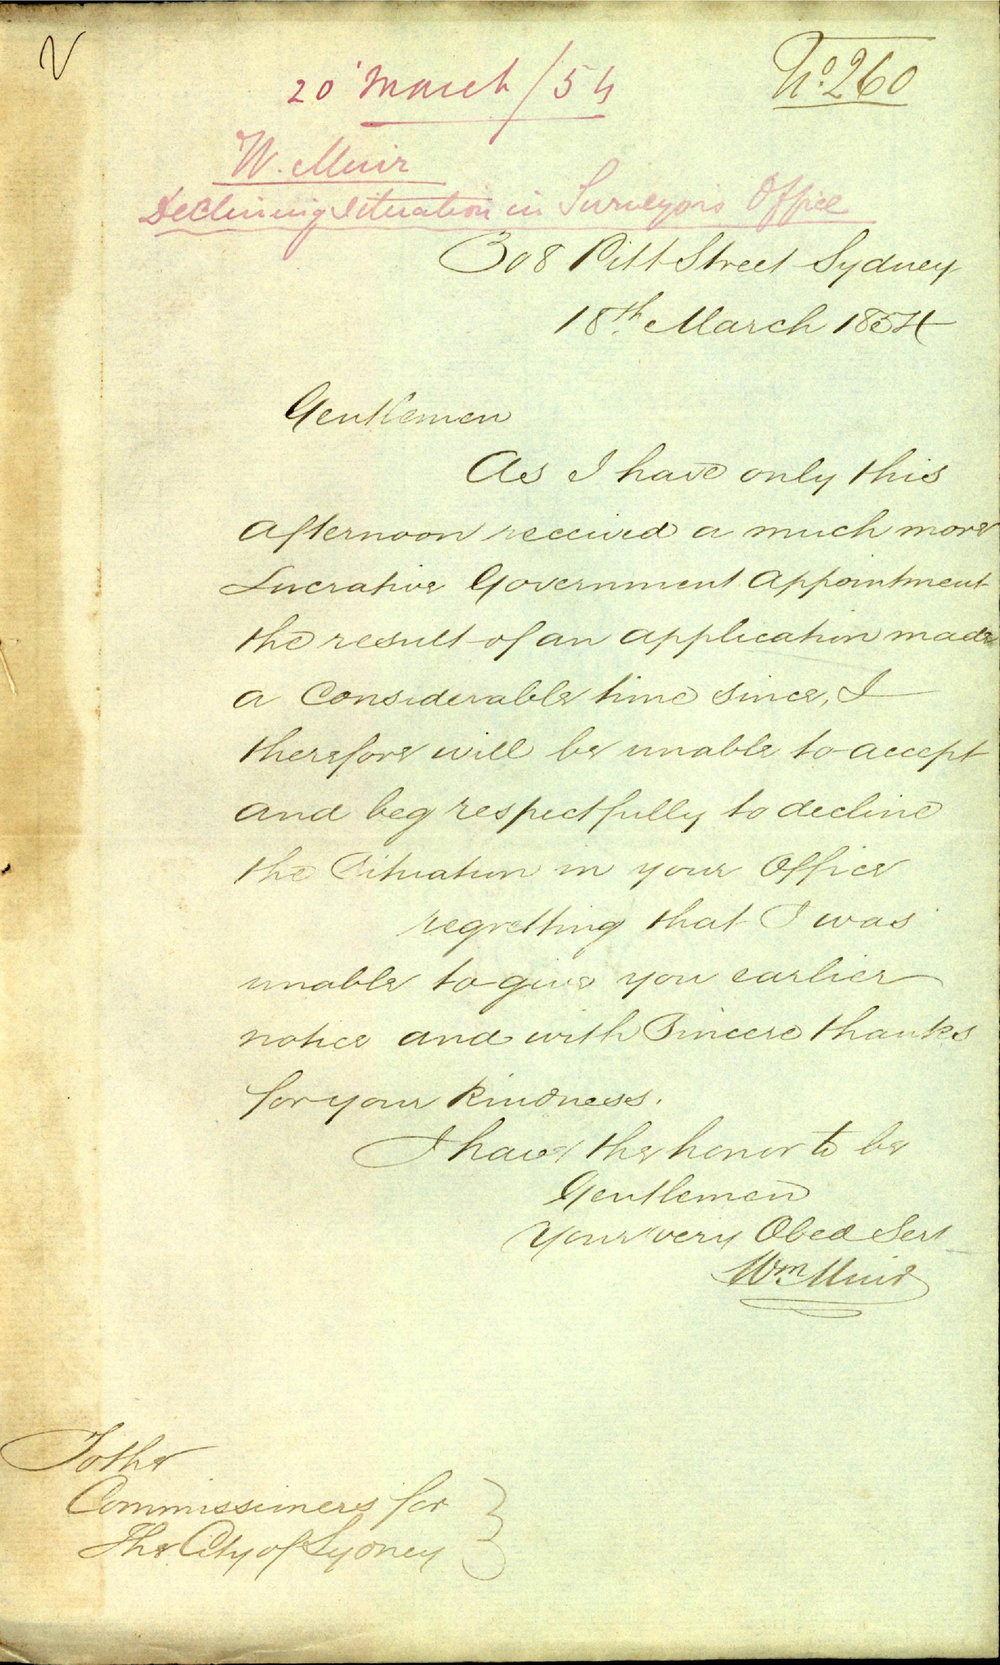 No. 260
20 March /54
W. Muir
Declining Situation in Surveyors Office
308 Pitt Street Sydney
18th March 1854
Gentlemen
As I have only this
afternoon received a much more
Lucrative Government Appointment
the result of an application made
a Considerable time since, I
therefore will be unable to accept
and beg respectfully to decline
the Situation in your Office
regretting that I was
unable to give you earlier
notice and with Sincere thanks
for your kindness.
I have the honor to be
Gentlemen
Your very Obed Sert
Wm Muir
To the
Commissioners for
The City of Sydney